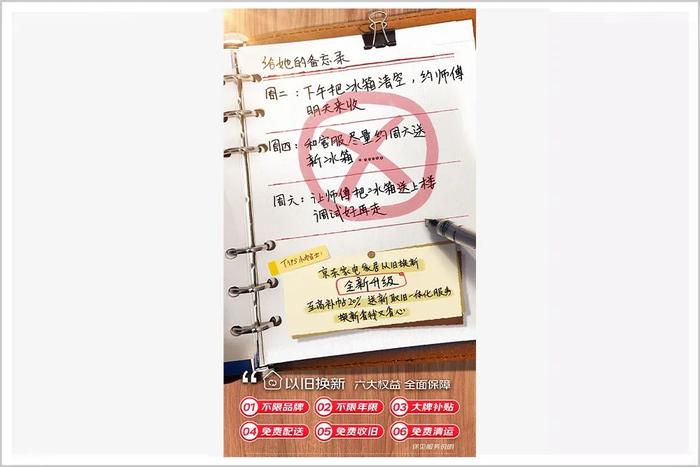 给她的备忘录
周二：下午把冰箱清空，约师傅
明天来收
周四：和客服尽量约周六送
新冰箱……
周六：让师傅把冰箱送上楼
调试好再走
京东家电家居以旧换新
全新升级
至高补贴20% 送新取旧一体化服务
换新省钱又省心
以旧换新 六大权益 全面保障
01 不限品牌 02 不限年限 03 大牌补贴
04 免费配送 05 免费收旧 06 免费清运
详见服务说明